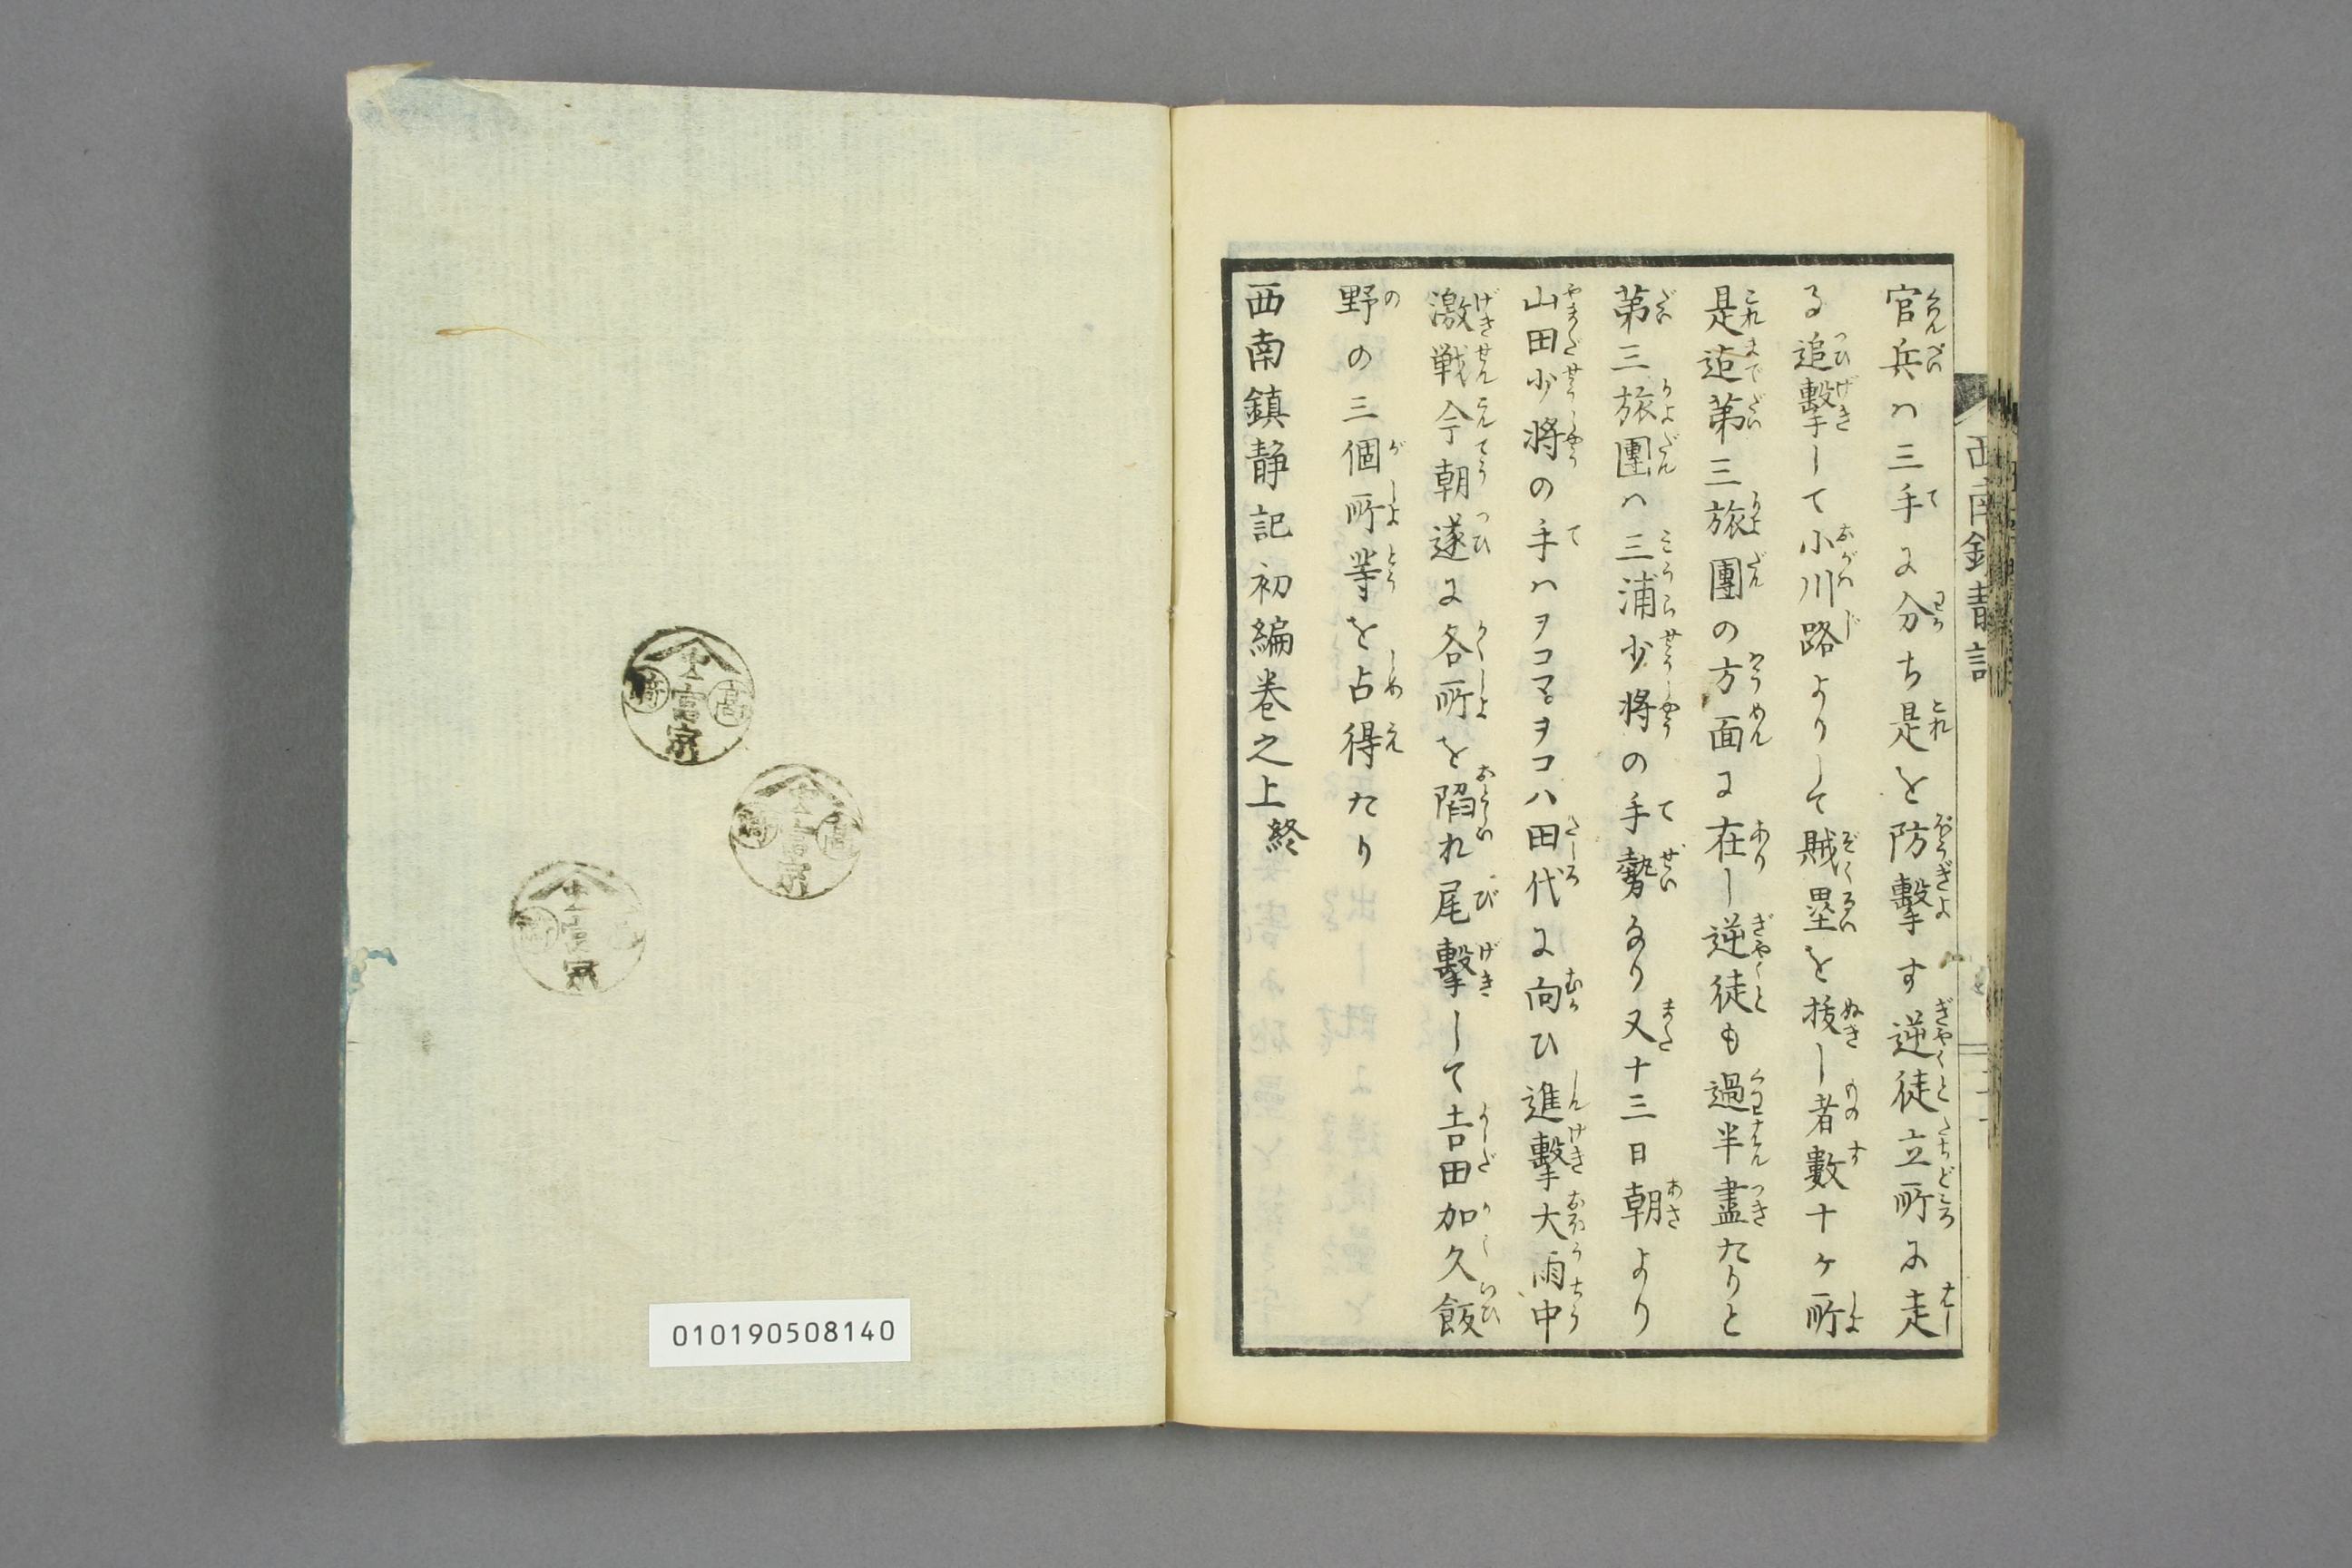 官兵ハ三手に分ち是を防撃す逆徒立所に走
る追撃して小川路よりして賊塁を抜し者數十ヶ所
是迠第三旅團の方面に在し逆徒も過半盡たりと
第三旅團ハ三浦少將の手勢なり又十三日朝より
山田少將の手ハヲコマヲコハ田代に向ひ進撃大雨中
激戦今朝遂に各所を陷れ尾撃して吉田加久飯
野の三個所等を占得たり
西南鎮静記初編巻之上終
010190508140